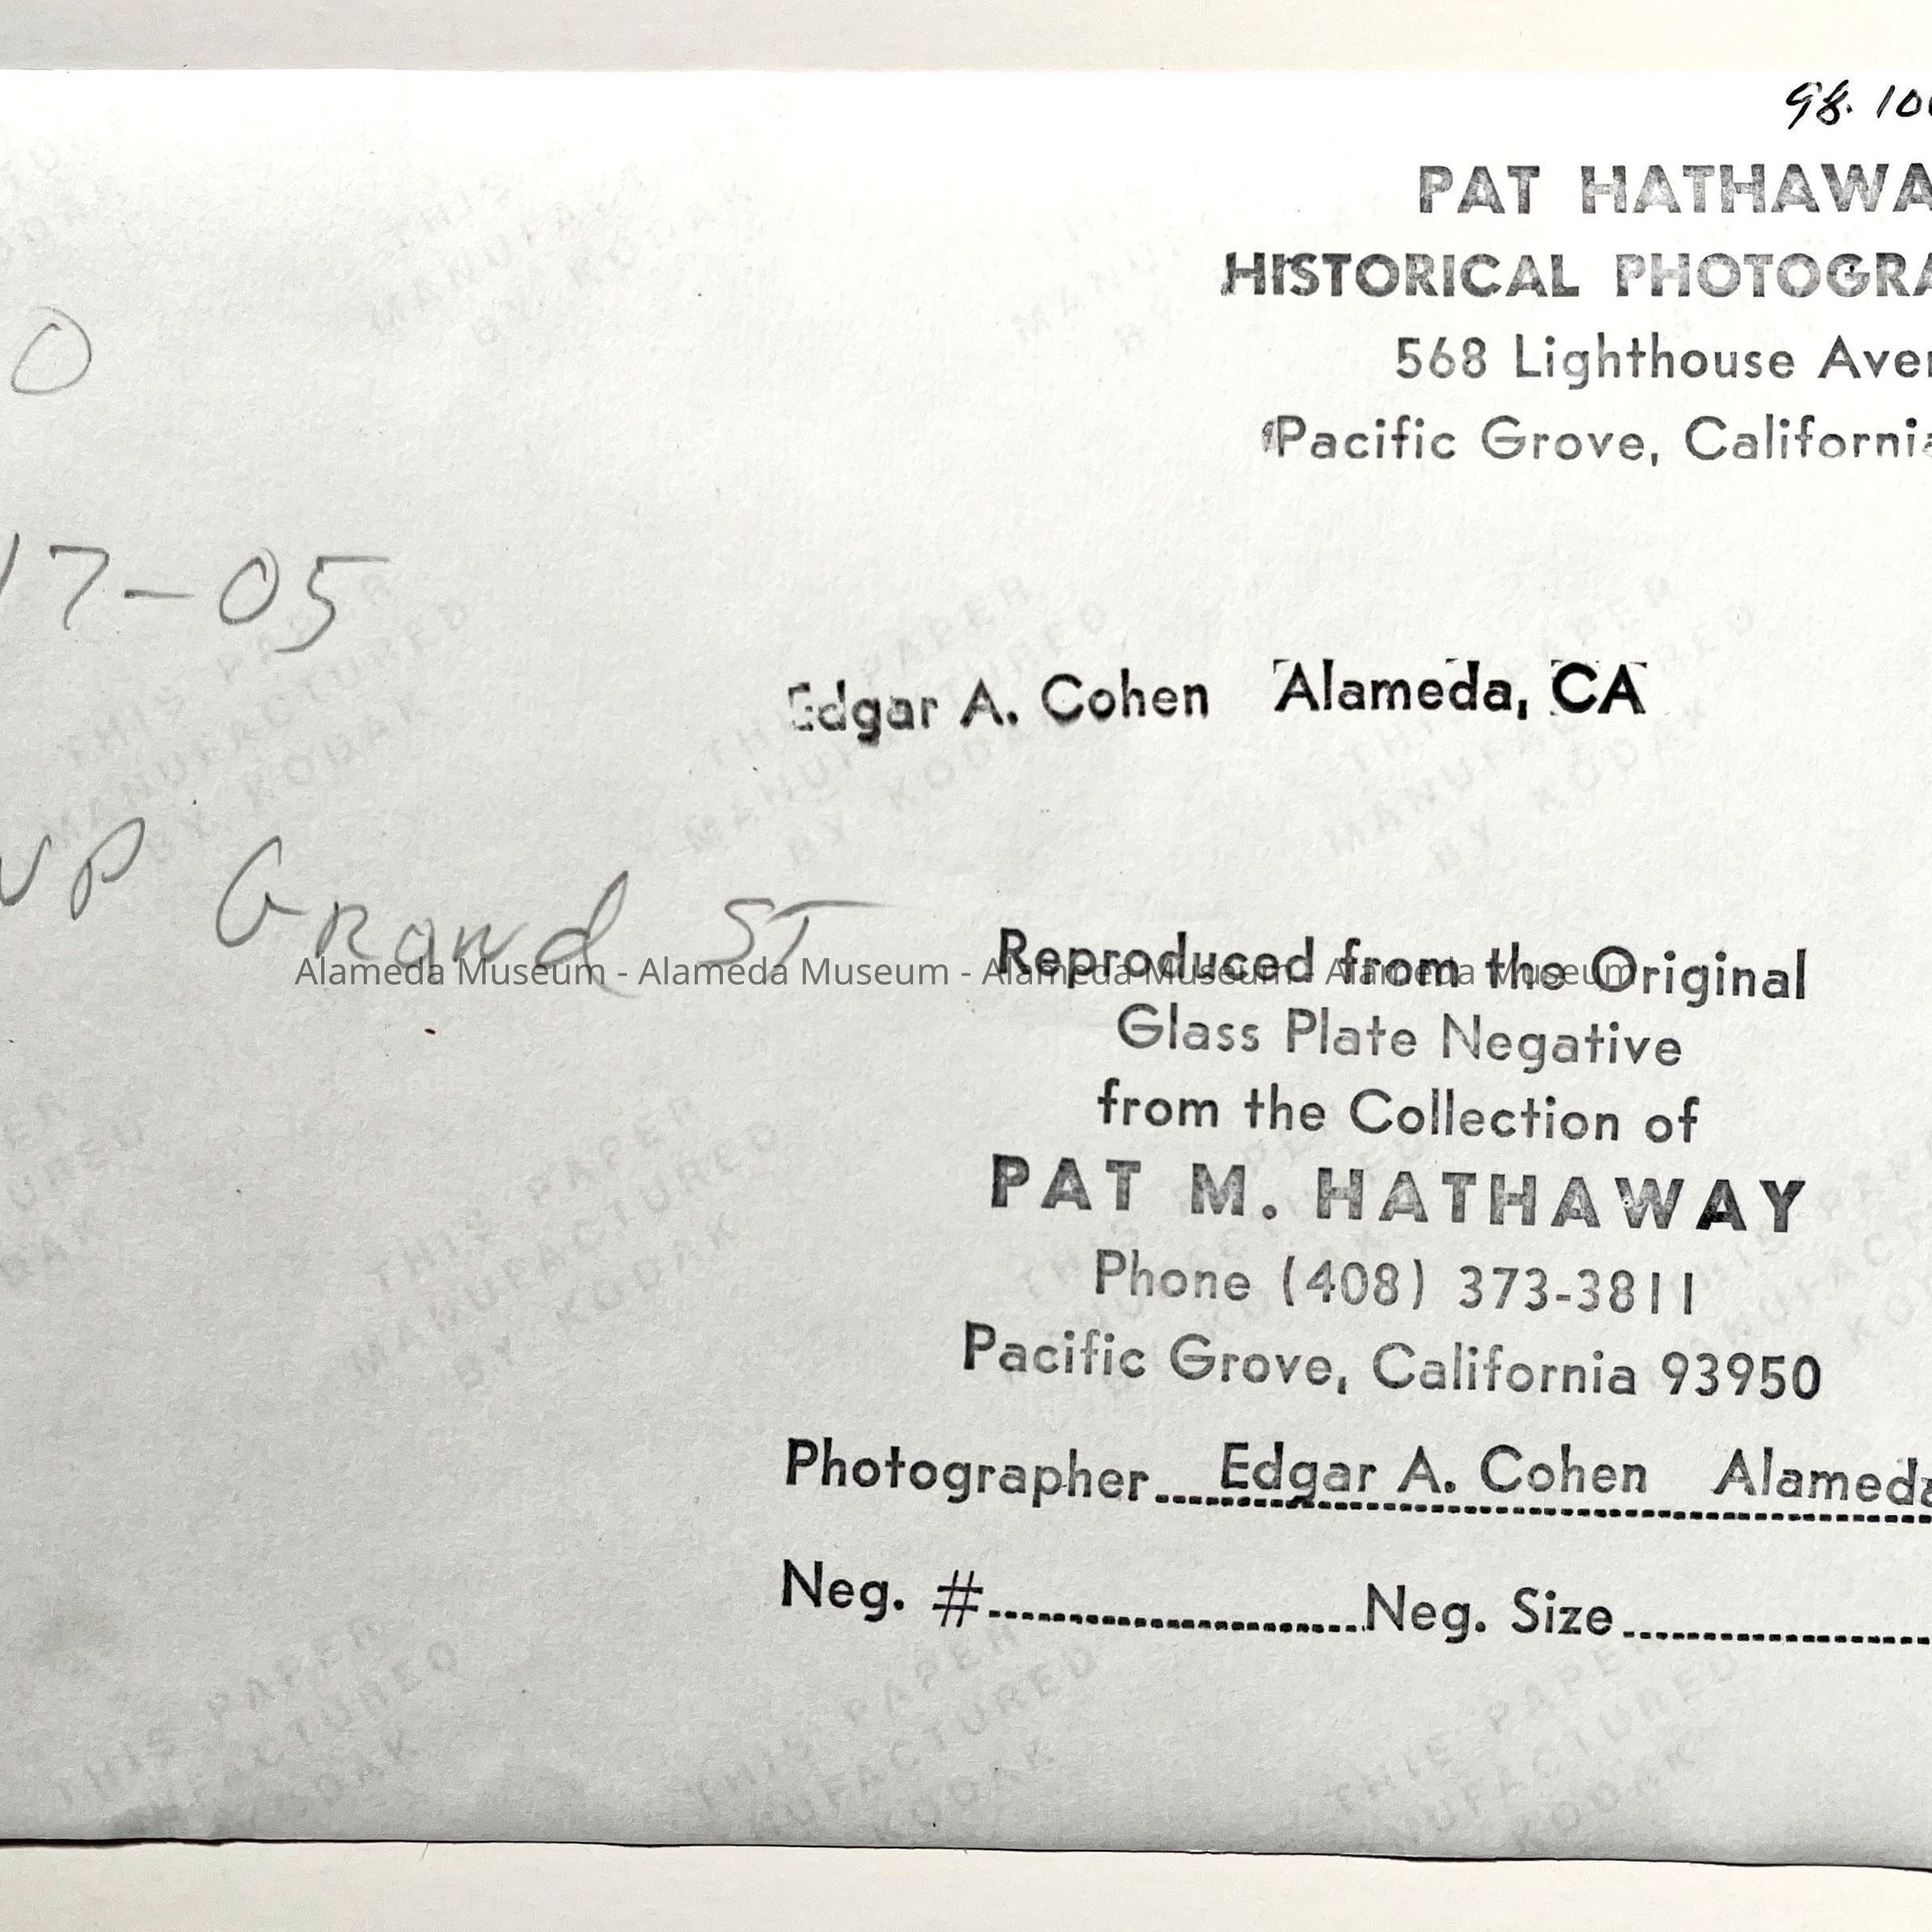 98. 10
PAT HATHAWA
HISTORICAL PHOTOGRA
568 Lighthouse Aven
Pacific Grove, California
0
17-05
Edgar A. Cohen Alameda, CA
UP Grand ST
Alameda Museum - Alameda Museum - Alameda Museum - Alameda Museum
Reproduced from the Original
Glass Plate Negative
from the Collection of
PAT M. HATHAWAY
Phone (408) 373-3811
Pacific Grove, California 93950
Photographer Edgar A. Cohen Alameda
Neg. # Neg. Size
THIS PAPER
MANUFACTURED
BY KODAK